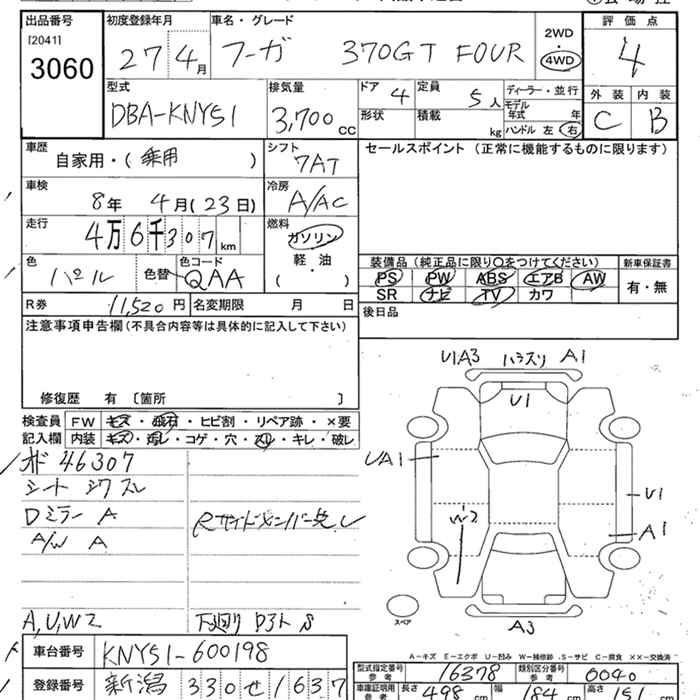 出品番号 初度登録年月 車名・グレード 評価点
[2041]
3060 27年 4月 フーガ 370GT FOUR 2WD 4WD 4
型式 排気量 ドア 定員 ディーラー・並行 外装 内装
DBA-KNY51 3,700 CC 4 5人 モデル年式 年 C B
形状 積載 kg ハンドル 左 右
車歴 シフト セールスポイント (正常に機能するものに限ります)
自家用・( 乗用 ) 7AT
車検 冷房
8年 4月 (23日) A/AC
走行 燃料
4万6千307km ガソリン
軽・油
( )
色 色替 色コード
パール QAA
装備品 (純正品に限り○をつけてください) 新車保証書
PS PW ABS エアB AW 有・無
SR ナビ TV カワ
R券 11,520円 名変期限 月 日 後日品
注意事項申告欄 (不具合内容等は具体的に記入して下さい)
修復歴 有 〔箇所 〕
検査員 FW キズ・飛石・ヒビ割・リペア跡・×要
記入欄 内装 キズ・汚レ・コゲ・穴・スレ・キレ・破レ
オド 46307
シート シワ スレ
Dミラー A
A/W A
Rサイドメンバー先 レ
A,U,W2 下廻り S
UIA3 ハラスリ A1
U1
UA1
U1
W2
A1
A3
スペア
A-キズ E-エクボ U-凹み W-補修跡 S-サビ C-腐食 XX-交換済
車台番号 KNY51-600198
登録番号 新潟 330 せ 1637
型式指定番号 参考 16378 類別区分番号 参考 0040
車庫証明用 参考 長さ 498 cm 幅 184 cm 高さ 151 cm